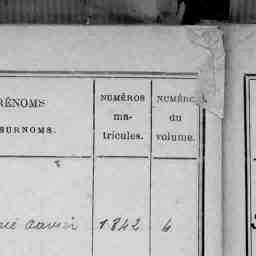 RÉNOMS
SURNOMS.
NUMÉROS
ma-
tricules.
NUMÉRO
du
volume.
1842 6